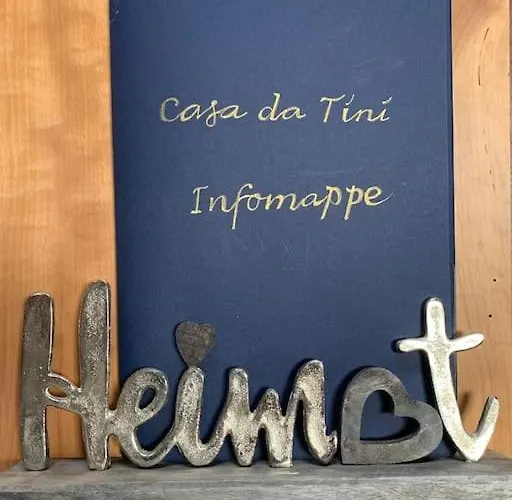 Casa da Tini
Infomappe
Heimat